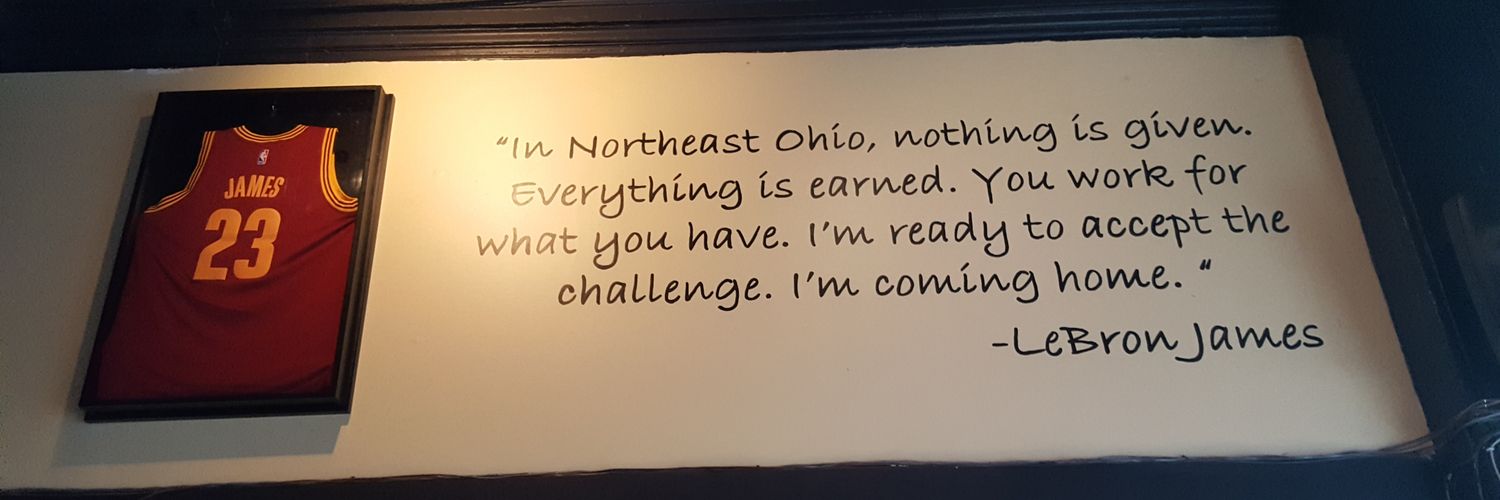 JAMES
23
“In Northeast Ohio, nothing is given.
Everything is earned. You work for
what you have. I'm ready to accept the
challenge. I'm coming home. “
-LeBron James